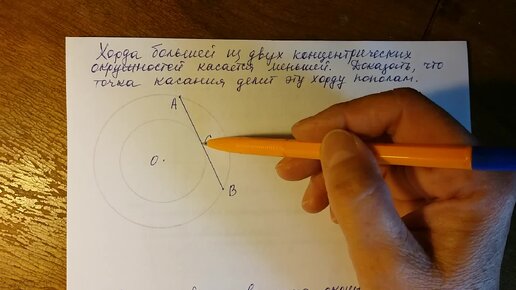 Хорда большей из двух концентрических
окружностей касается меньшей. Доказать, что
точка касания делит эту хорду пополам.
A
C
O
B